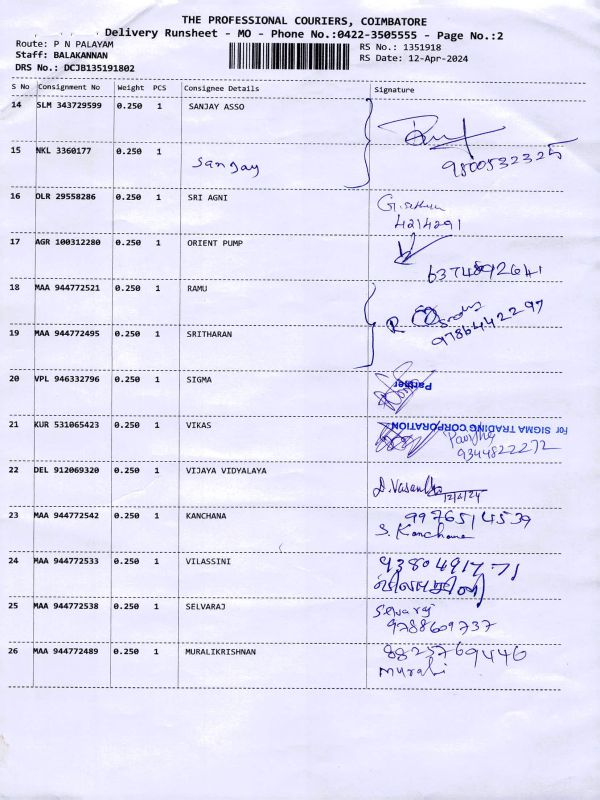 THE PROFESSIONAL COURIERS, COIMBATORE
Delivery Runsheet - MO - Phone No.:0422-3505555 - Page No.:2
Route: P N PALAYAM
RS No.: 1351918
Staff: BALAKANNAN
RS Date: 12-Apr-2024
DRS No.: DCJB135191802
S No Consignment No Weight PCS Consignee Details Signature
14 SLM 343729599 0.250 1 SANJAY ASSO
15 NKL 3360177 0.250 1 Sanjay 9800532325
16 DLR 29558286 0.250 1 SRI AGNI
4214291
17 AGR 100312280 0.250 1 ORIENT PUMP
6374892641
18 MAA 944772521 0.250 1 RAMU
9786442297
19 MAA 944772495 0.250 1 SRITHARAN
20 VPL 946332796 0.250 1 SIGMA
Partner
21 KUR 531065423 0.250 1 VIKAS For SIGMA TRADING CORPORATION
9344822272
22 DEL 912069320 0.250 1 VIJAYA VIDYALAYA
12/4/24
23 MAA 944772542 0.250 1 KANCHANA 9976514539
S. Kanchana
24 MAA 944772533 0.250 1 VILASSINI 9380491771
25 MAA 944772538 0.250 1 SELVARAJ Selvaraj
9788609737
26 MAA 944772489 0.250 1 MURALIKRISHNAN 8825769446
Murali